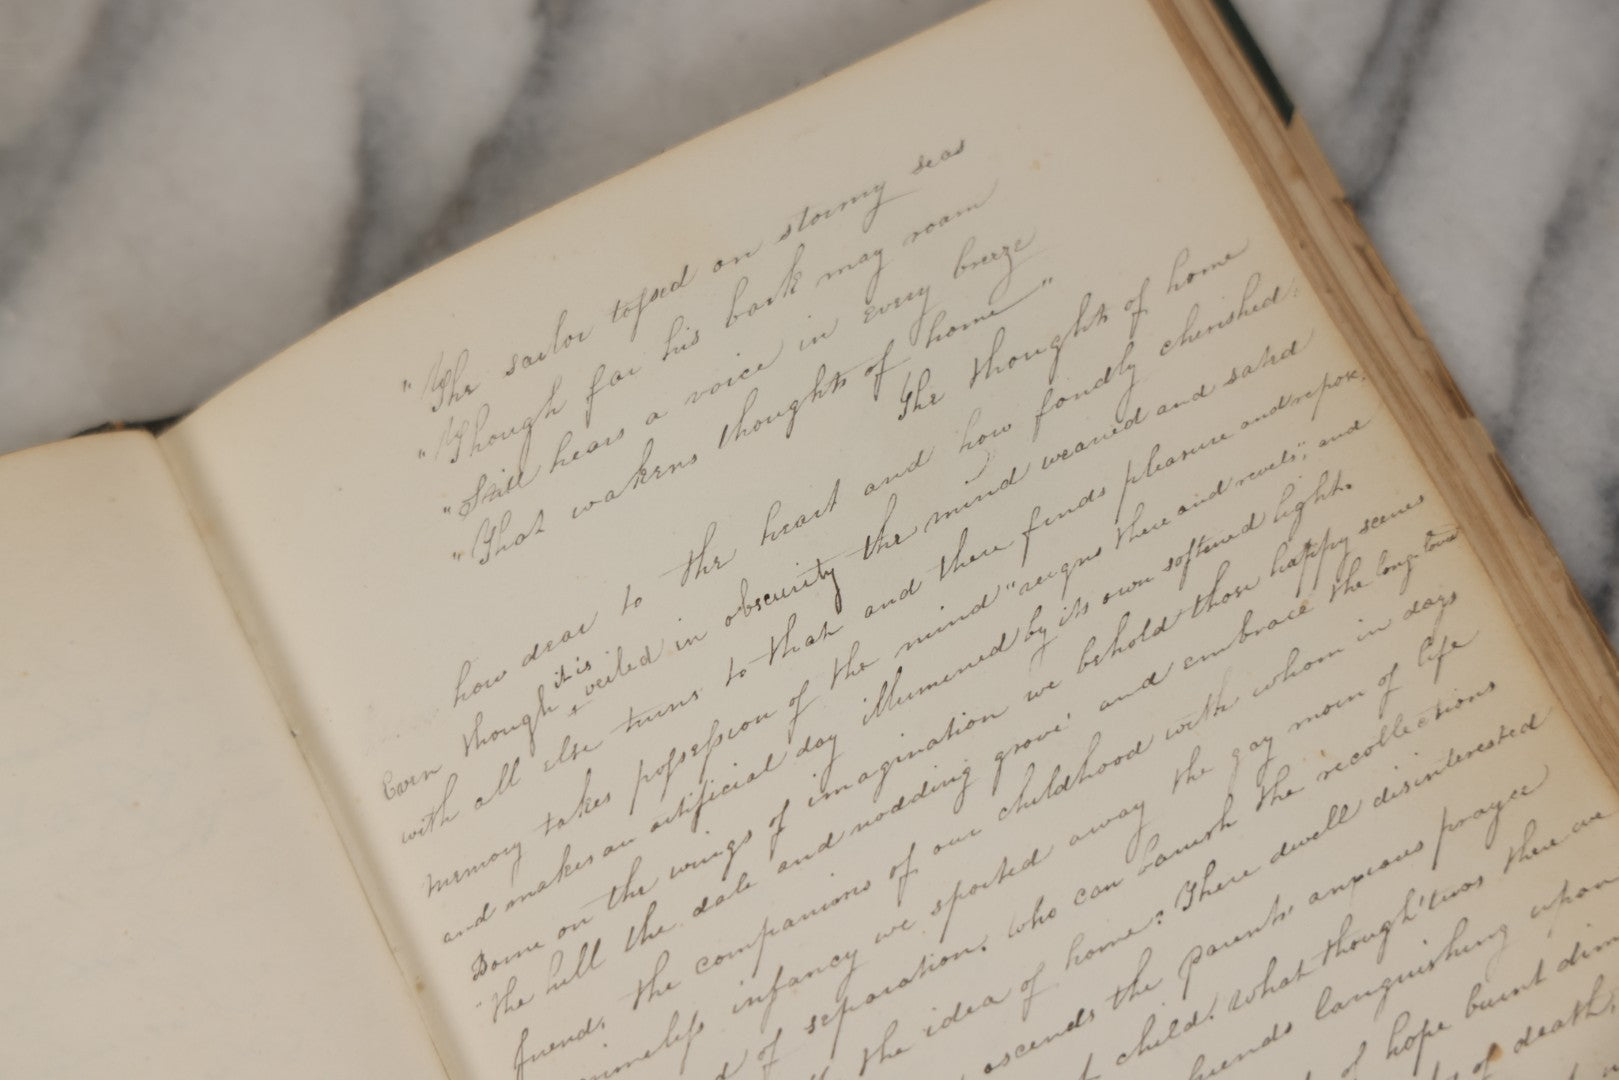 "The sailor tossed on stormy seas
"Though far his bark may roam
"Still hears a voice in every breeze
"That wakens thoughts of home"
The thoughts of home
how dear to the heart and how fondly cherished.
Even though it is veiled in obscurity the mind wearied and sated
with all else turns to that and there finds pleasure and repose.
memory takes possession of the mind "reigns there and revels", and
and makes an artificial day illumined by its own softened light.
Borne on the wings of imagination we behold those happy scenes
"the hill the dale and nodding grove" and embrace the long lov'd
friends, the companions of our childhood with whom in days
infancy we sported away the gay morn of life
of separation. Who can banish the recollections
the idea of home? There dwell disinterested
ascends the parents' anxious prayer
child. What though 'twas there we
friends languishing upon
of hope burnt dim
of death,